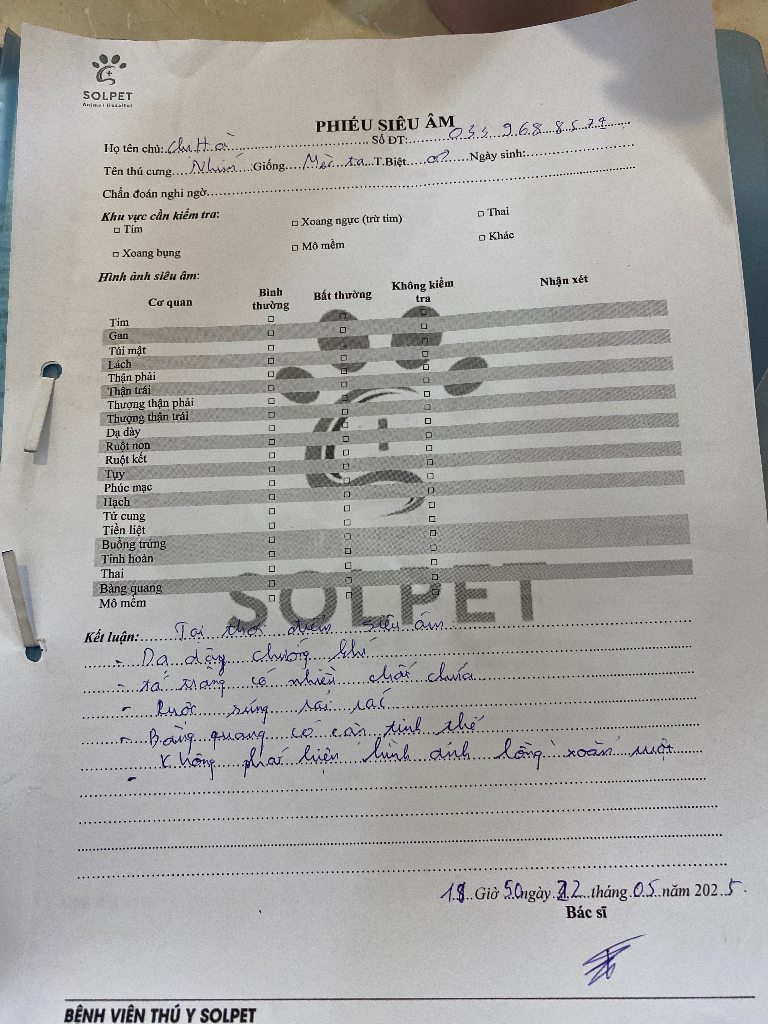 SOLPET
Animal Hospital
PHIẾU SIÊU ÂM
Họ tên chủ: Chị Hà Số ĐT: 033 968 8579
Tên thú cưng Nhím Giống Mèo ta T.Biệt ♂ Ngày sinh:
Chẩn đoán nghi ngờ
Khu vực cần kiểm tra:
□ Tim □ Xoang ngực (trừ tim) □ Thai
□ Xoang bụng □ Mô mềm □ Khác
Hình ảnh siêu âm:
Cơ quan Bình thường Bất thường Không kiểm tra Nhận xét
Tim □ □ □
Gan □ □ □
Túi mật □ □ □
Lách □ □ □
Thận phải □ □ □
Thận trái □ □ □
Thượng thận phải □ □ □
Thượng thận trái □ □ □
Dạ dày □ □ □
Ruột non □ □ □
Ruột kết □ □ □
Tụy □ □ □
Phúc mạc □ □ □
Hạch □ □ □
Tử cung □ □ □
Tiền liệt □ □ □
Buồng trứng □ □ □
Tinh hoàn □ □ □
Thai □ □ □
Bàng quang □ □ □
Mô mềm □ □ □
SOLPET
Kết luận: Tại thời điểm siêu âm
- Dạ dày chướng khí
- tá tràng có nhiều chất chứa
- Ruột sưng rải rác
- Bàng quang có cặn tinh thể
- Không phát hiện hình ảnh lồng xoắn ruột
18 Giờ 50 ngày 22 tháng 05 năm 2025.
Bác sĩ
BỆNH VIỆN THÚ Y SOLPET